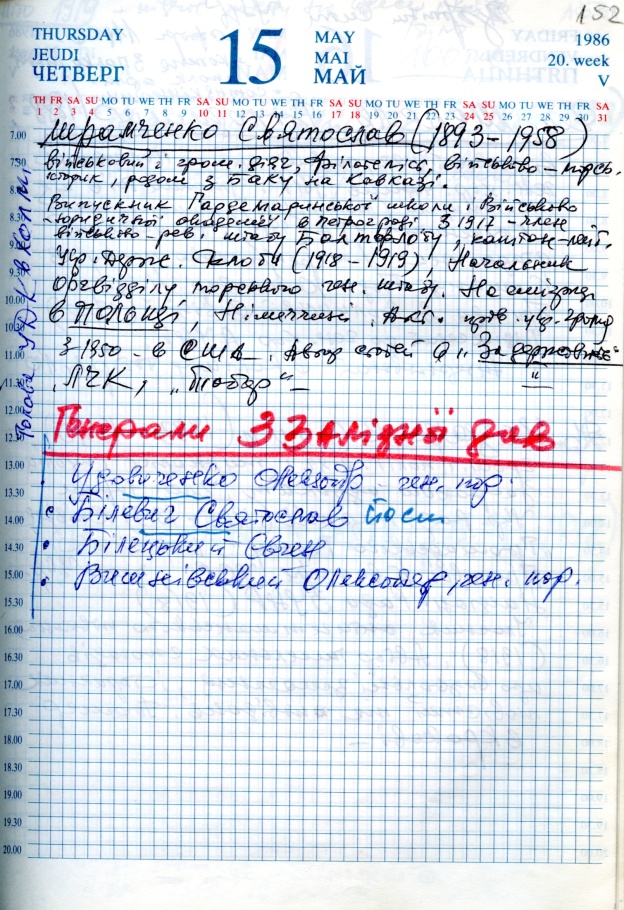 152
THURSDAY
JEUDI
ЧЕТВЕРГ
15
MAY
MAI
МАЙ
1986
20. week
V
TH FR SA SU MO TU WE TH FR SA SU MO TU WE TH FR SA SU MO TU WE TH FR SA SU MO TU WE TH FR SA
1 2 3 4 5 6 7 8 9 10 11 12 13 14 15 16 17 18 19 20 21 22 23 24 25 26 27 28 29 30 31
7.00
Шрамченко Святослав (1893–1958)
7.30
військовий і гром. діяч, філателіст, військово – морс.
історик, родом з Баку на Кавказі.
Випускник Гардемаринської школи і Військово
8.30
– юридичної академії в Петрограді З 1917 – член
військово рев. штабу Балтфлоту, капітан–лейт.
Укр. Держ. Флоти (1918 – 1919), Начальник
Оргвідділу морського ген. штабу. На еміграції
10.00
в Польщі, Німеччині. Акт.
10.30
11.00
З 1950 – в США. Автор статей в "За державність"
11.30
ЛЧК, "Табор" –
12.00
12.30
Генерали З Західної
13.00
Удовиченко Олександр – ген. пор.
13.30
14.00
Білевич Святослав
14.30
Білецький Євген
15.00
Вишнівський Олександр, ген. пор.
15.30
16.00
16.30
17.00
17.30
18.00
18.30
19.00
19.30
20.00